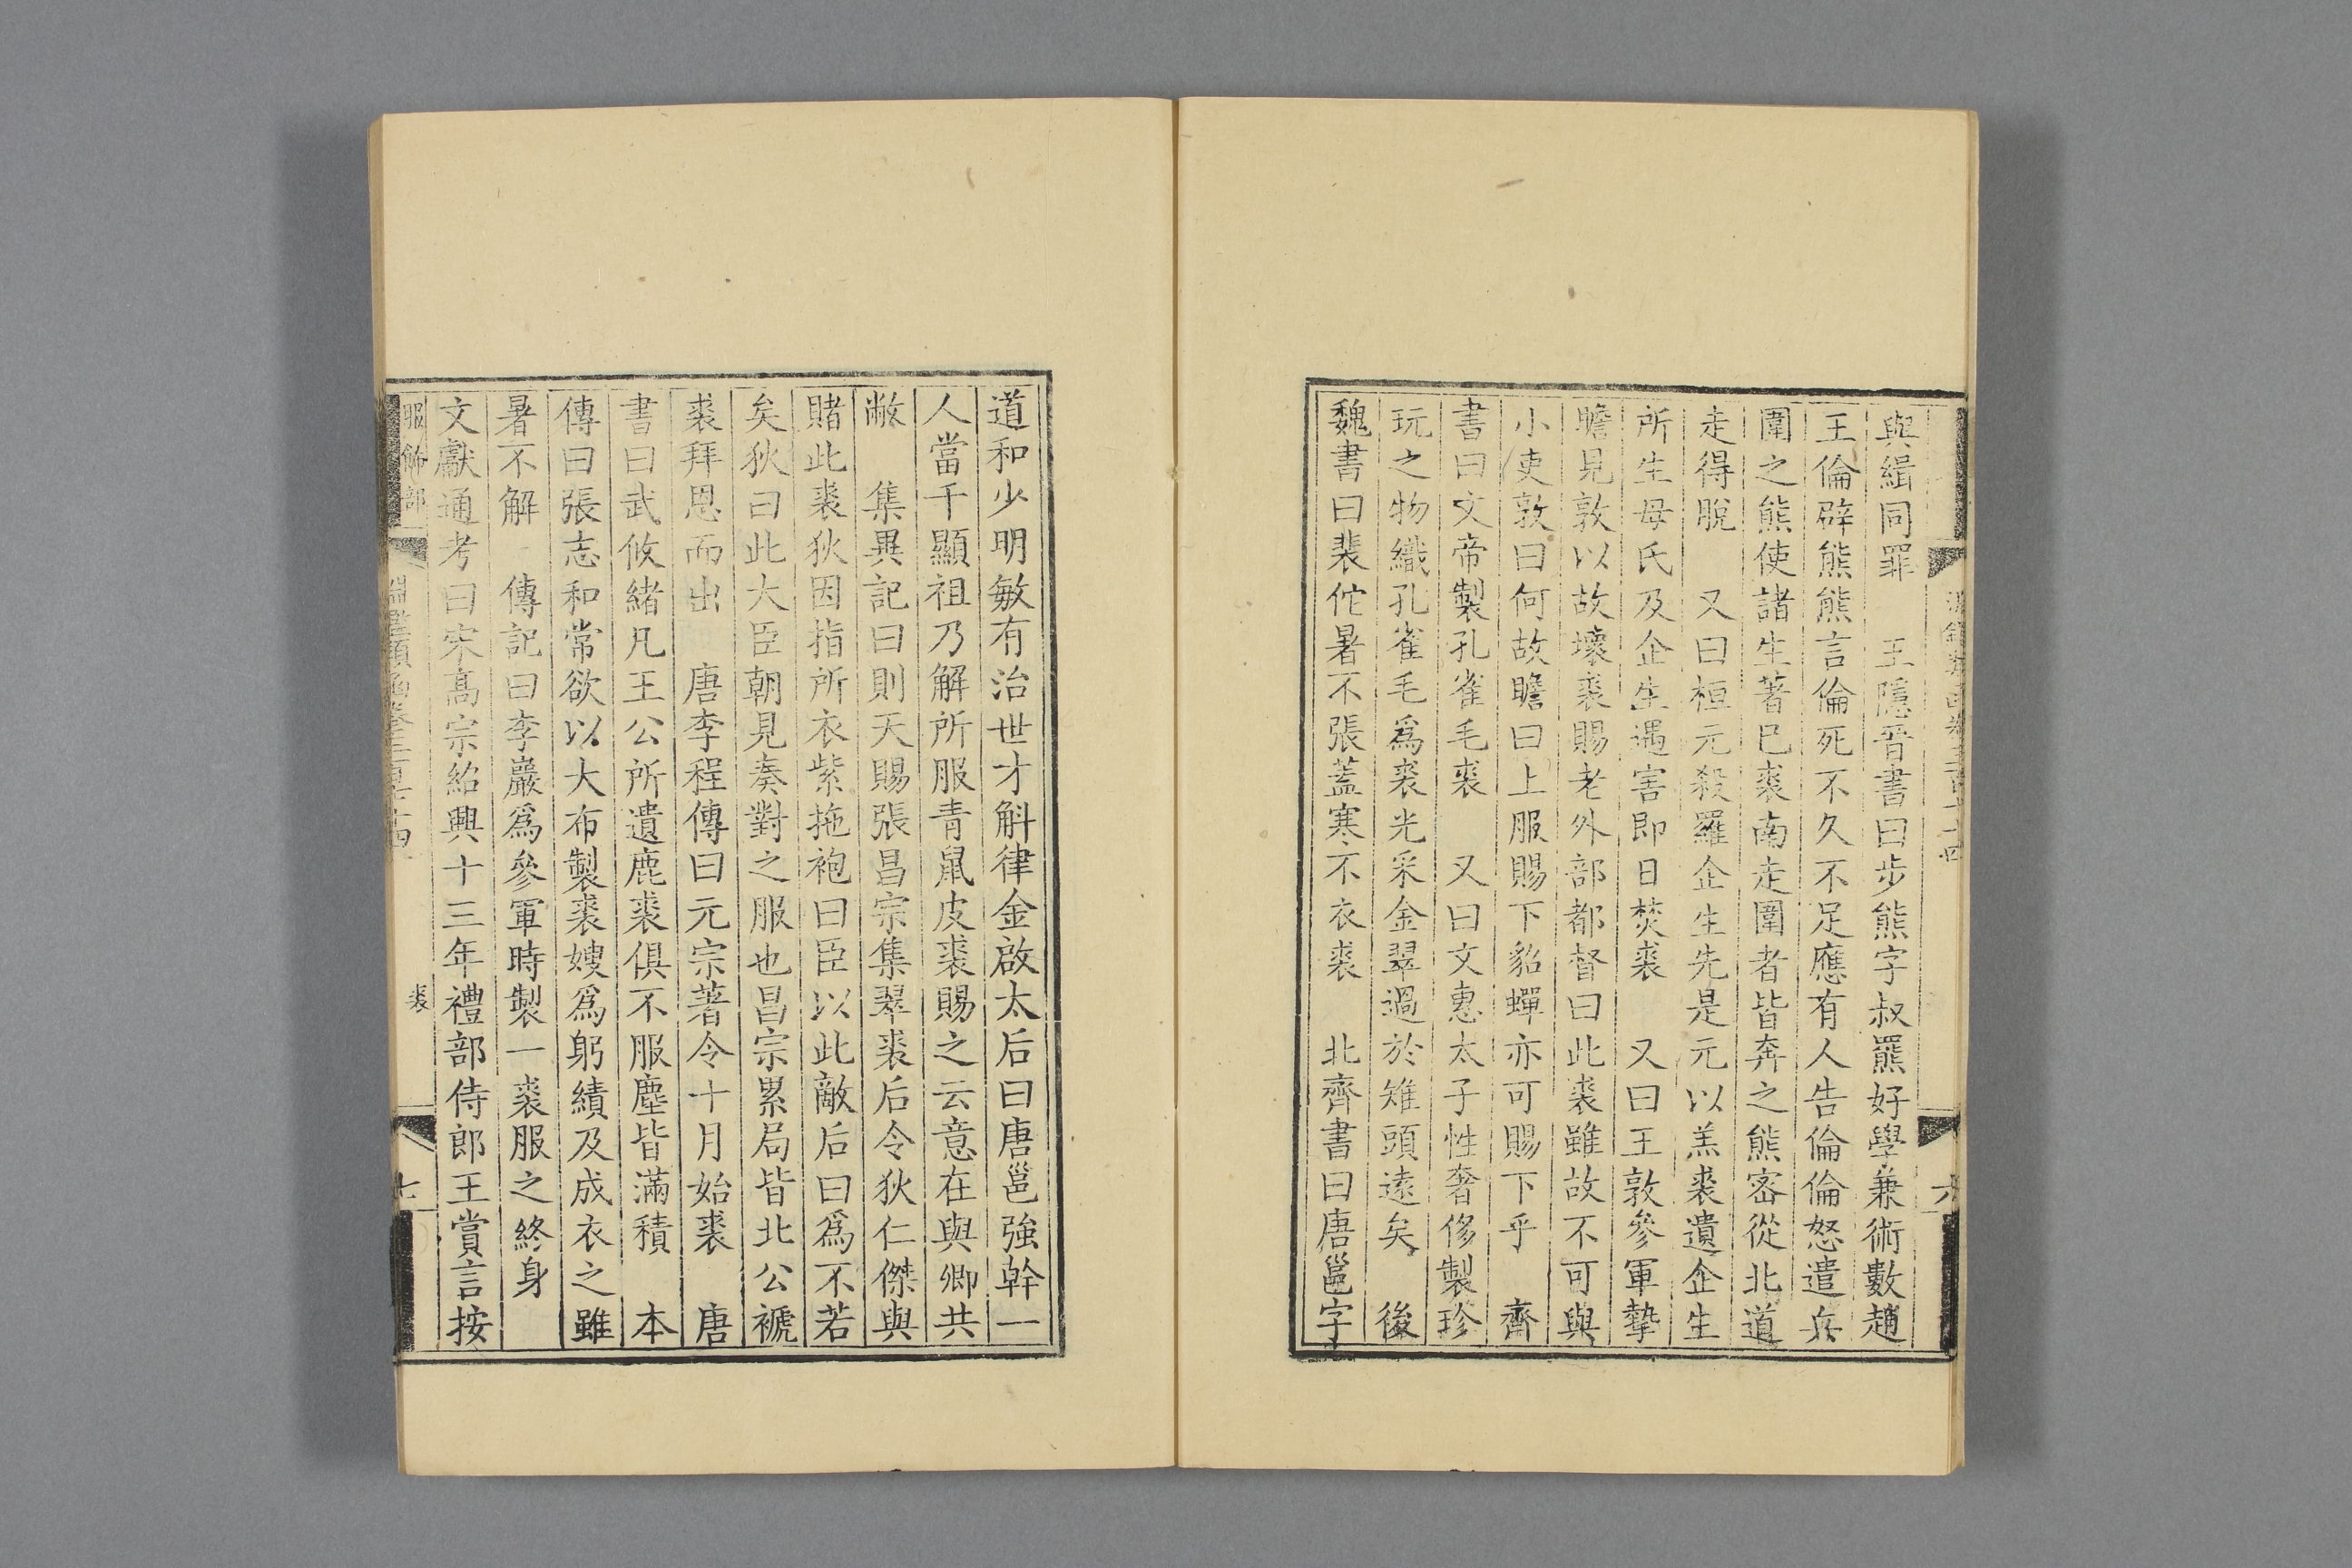 與緝同罪　王隱晉書曰步熊字叔羆好學兼術數趙
王倫辟熊熊言倫死不久不足應有人告倫倫怒遣兵
圍之熊使諸生著已裘南走圍者皆奔之熊密從北道
走得脫　又曰桓元殺羅企生先是元以羔裘遺企生
所生母氏及企生遇害即日焚裘　又曰王敦參軍摯
瞻見敦以故壞裘賜老外部都督曰此裘雖故不可與
小吏敦曰何故瞻曰上服賜下貂蟬亦可賜下乎　齊
書曰文帝製孔雀毛裘　又曰文惠太子性奢侈製珍
玩之物織孔雀毛爲裘光采金翠過於雉頭遠矣　後
魏書曰裴佗暑不張蓋寒不衣裘　北齊書曰唐邕字
六
道和少明敏有治世才斛律金啟太后曰唐邕強幹一
人當千顯祖乃解所服青鼠皮裘賜之云意在與卿共
敝　集異記曰則天賜張昌宗集翠裘后令狄仁傑與
賭此裘狄因指所衣紫拖袍曰臣以此敵后曰爲不若
矣狄曰此大臣朝見奏對之服也昌宗累局皆北公褫
裘拜恩而出　唐李程傳曰元宗著令十月始裘　唐
書曰武攸緒凡王公所遺鹿裘俱不服塵皆滿積　本
傳曰張志和常欲以大布製裘嫂爲躬績及成衣之雖
暑不解　傳記曰李巖爲參軍時製一裘服之終身
文獻通考曰宋高宗紹興十三年禮部侍郎王賞言按
服飾部　淵鑑類函卷三百七十四　裘　七